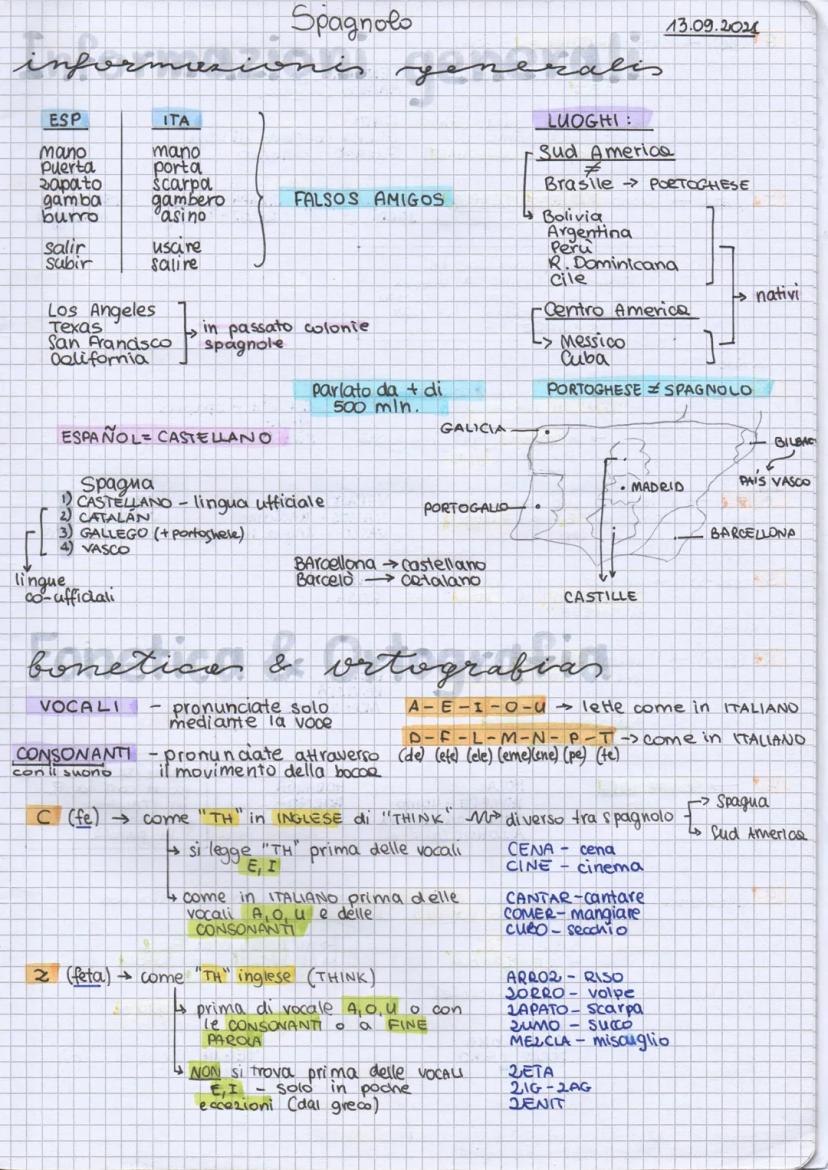 Spagnolo
13.09.2021
Informazioni generali
informazioni generali
ESP ITA
mano mano
puerta porta
zapato scarpa
gamba gambero
burro asino
salir uscire
subir salire
FALSOS AMIGOS
LUOGHI:
Sud America
≠
Brasile → PORTOGHESE
Bolivia
Argentina
Perù
R. Dominicana
Cile
Centro America
Messico
Cuba
→ nativi
Los Angeles
Texas
San Francisco
California
→ in passato colonie
spagnole
parlato da + di
500 mln.
PORTOGHESE ≠ SPAGNOLO
ESPAÑOL = CASTELLANO
Spagna
1) CASTELLANO - lingua ufficiale
2) CATALÁN
3) GALLEGO (+ portoghele)
4) VASCO
lingue
co-ufficiali
BArcellona → castellano
Barcelò → catalano
GALICIA
BILBAO
PAÍS VASCO
MADRID
PORTOGALLO
BARCELLONA
CASTILLE
Fonetica & Ortografia
fonetica & ortografia
VOCALI - pronunciate solo
mediante la voce
A-E-I-O-U → lette come in ITALIANO
D-F-L-M-N-P-T → come in ITALIANO
(de) (efe) (ele) (eme) (ene) (pe) (te)
CONSONANTI - pronunciate attraverso
con il suono il movimento della bocca
C (fe) → come "TH" in INGLESE di "THINK" → diverso tra spagnolo → Spagna
→ Sud America
si legge "TH" prima delle vocali
E, I
CENA - cena
CINE - cinema
come in ITALIANO prima delle
vocali A, O, U e delle
CONSONANTI
CANTAR - cantare
COMER - mangiare
CUBO - secchio
Z (feta) → come "TH" inglese (THINK)
prima di vocale A, O, U o con
le CONSONANTI o a FINE
PAROLA
ARROZ - RISO
ZORRO - volpe
ZAPATO - scarpa
ZUMO - succo
MEZCLA - miscuglio
NON si trova prima delle VOCALI
E, I - solo in poche
eccezioni (dal greco)
ZETA
ZIG-ZAG
ZENIT